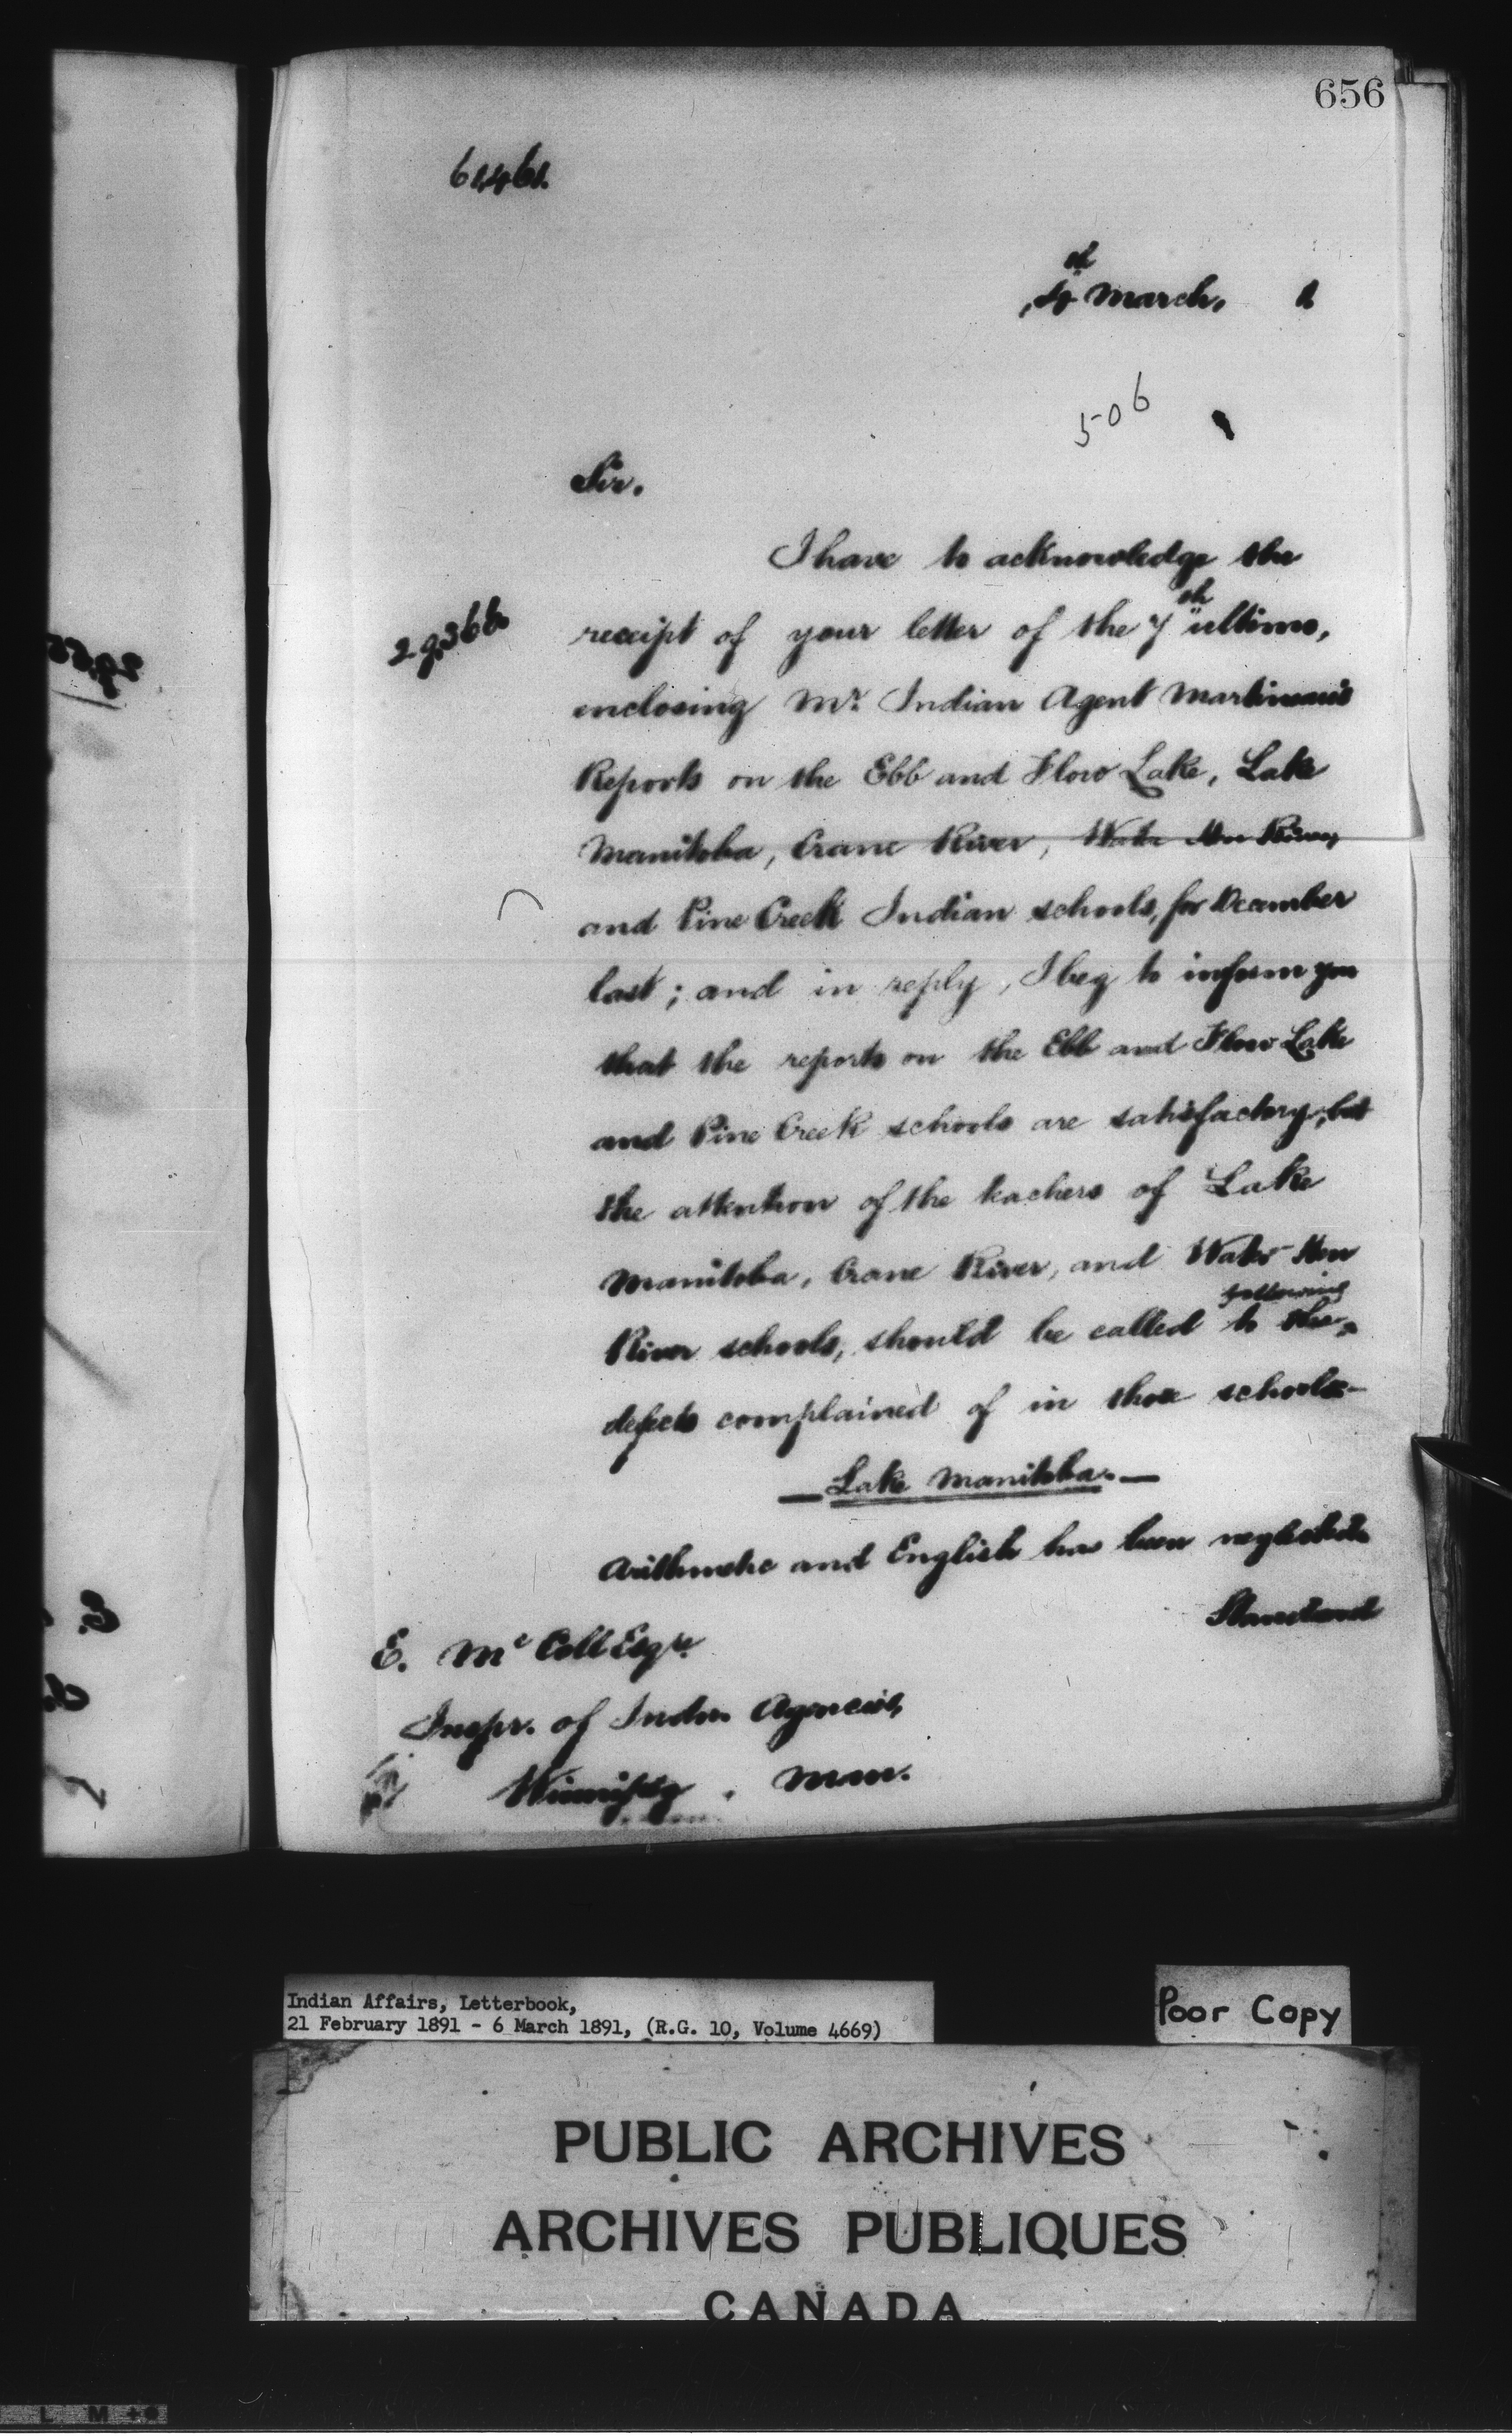 656
61,461.
4th March, 1
506
Sir.
I have to acknowledge the
29366
receipt of your letter of the 7th ultimo,
enclosing Mr. Indian Agent Martineau's
Reports on the Ebb and Flow Lake, Lake
Manitoba, Crane River, Water Hen River,
and Pine Creek Indian schools, for December
last; and in reply, I beg to inform you
that the reports on the Ebb and Flow Lake
and Pine Creek schools are satisfactory, but
the attention of the teachers of Lake
Manitoba, Crane River, and Water Hen
following
River schools, should be called to the
defects complained of in those schools-
Lake Manitoba.
Arithmetic and English has been neglected.
Standard
E. Mc Coll Esqre.
Inspr. of Indn. Agencies,
Winnipeg, Man.
Indian Affairs, Letterbook,
21 February 1891 - 6 March 1891, (R.G. 10, Volume 4669)
Poor Copy
PUBLIC ARCHIVES
ARCHIVES PUBLIQUES
CANADA